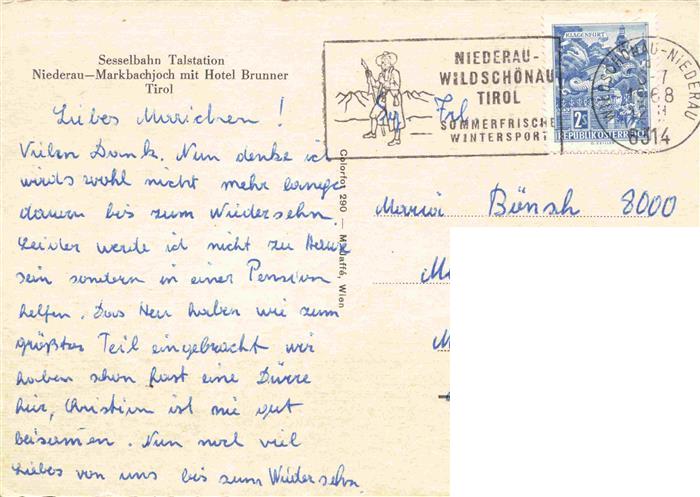 Sesselbahn Talstation
Niederau—Markbachjoch mit Hotel Brunner
Tirol
Liebes Mariechen!
Vielen Dank. Nun denke ich
wirds wohl nicht mehr lange
dauern bis zum Wiedersehn.
Leider werde ich nicht zu Hause
sein sondern in einer Pension
helfen. Das Heu haben wir zum
größten Teil eingebracht wir
haben schon fast eine Dürre
hier, Christian ist nie gut
beisamen. Nun noch viel
Liebes von uns bis zum Wiedersehn.
Colorfot 290 — M. Jaffé, Wien
NIEDERAU-
WILDSCHÖNAU
TIROL
SOMMERFRISCHE
WINTERSPORT
KLAGENFURT
2S
REPUBLIK ÖSTERREICH
WILDSCHÖNAU-NIEDERAU
6314
Frl
Maria Bönsch 8000